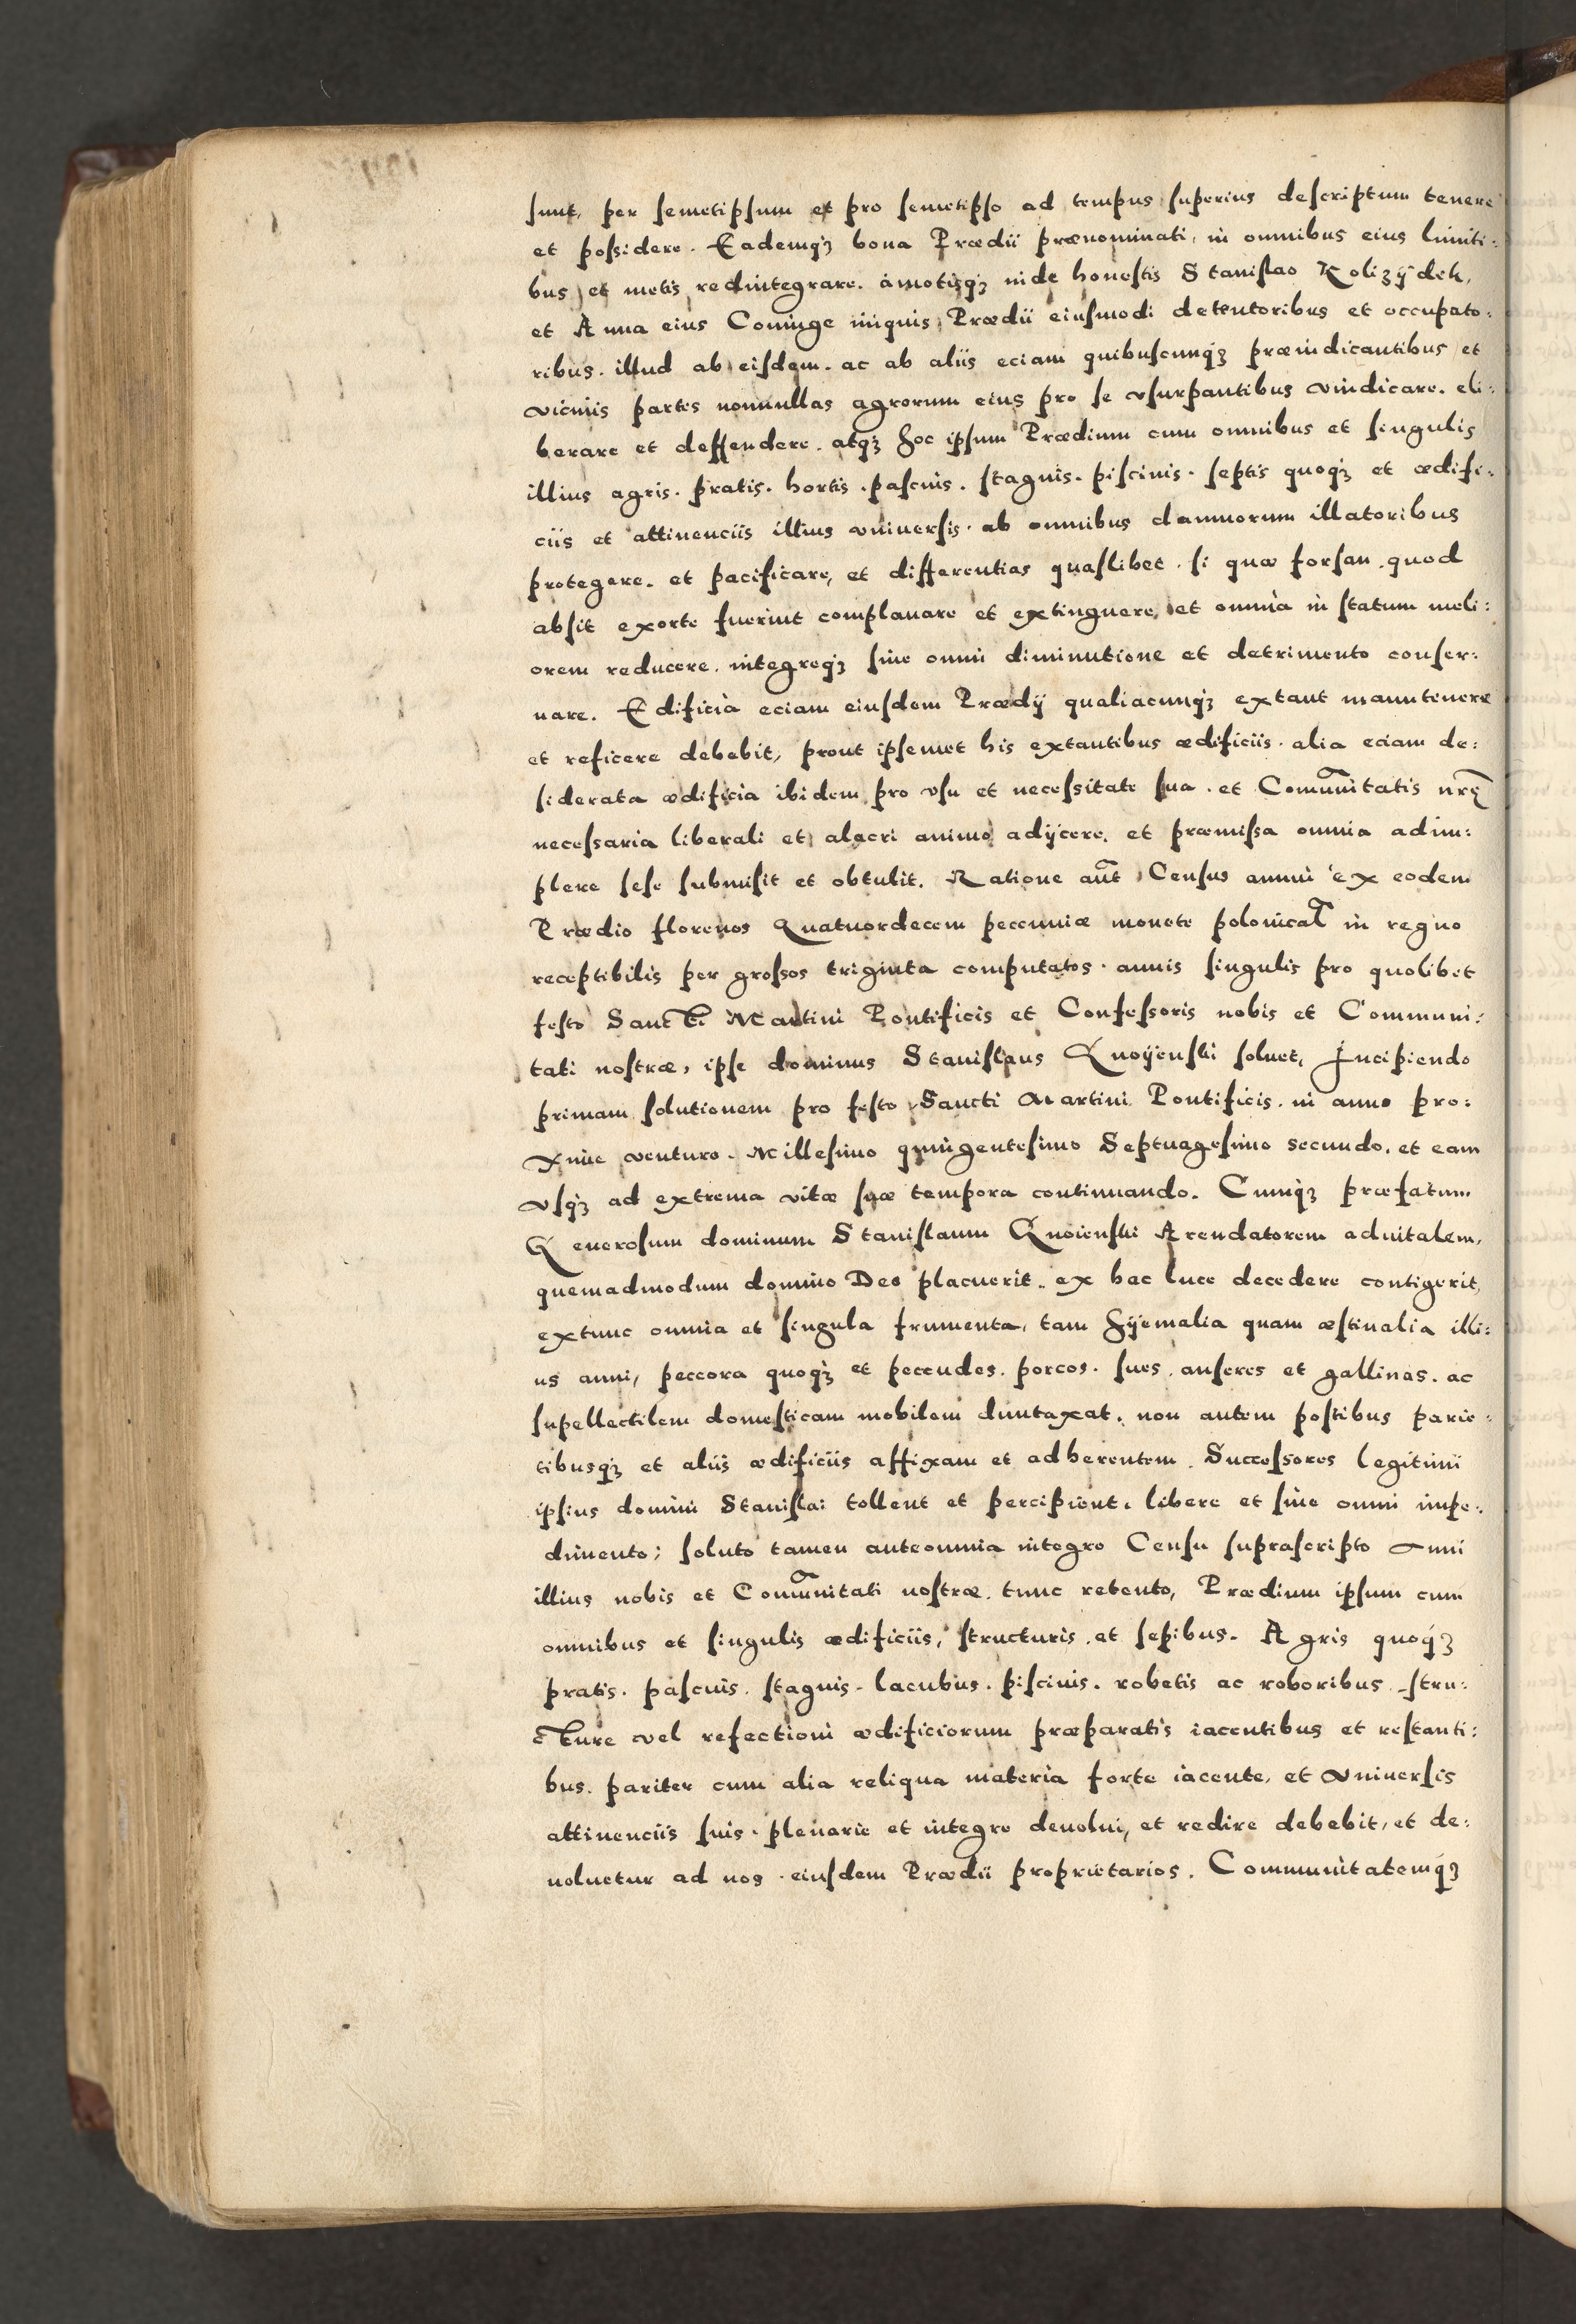 sunt, per semetipsum et pro semetipso ad tempus superius descriptum tenere
et possidere. Eademq3 bona Prædii prænominati, in omnibus eius limiti:
bus et metis redintegrare. amotisq3 inde honestis Stanislao Kolizÿdek,
et Anna eius Coniuge iniquis Prædii eiusmodi detentoribus et occupato:
ribus. illud ab eisdem. ac ab aliis eciam quibuscunq3 præiudicantibus et
vicinis partes nonnullas agrorum eius pro se vsurpantibus vindicare. eli:
berare et deffendere. atq3 hoc ipsum Prædium cum omnibus et singulis
illius agris. pratis. hortis. pascuis. stagnis. piscinis. septis quoq3 et ædifi:
ciis et attinenciis illius vniuersis. ab omnibus damnorum illatoribus
protegere. et pacificare, et differentias quaslibet. si quæ forsan. quod
absit exorte fuerint complanare et extinguere, et omnia in statum meli:
orem reducere. integreq3 sine omni diminutione et detrimento conser:
uare. Edificia eciam eiusdem Prædij qualiacunq3 extant manutenere
et reficere debebit, prout ipsemet his extantibus ædificiis. alia eciam de:
siderata ædificia ibidem pro vsu et necessitate sua. et Comu̅nitatis nr̅ę
necessaria liberali et alacri animo adijcere, et præmissa omnia adim:
plere sese submisit et obtulit. Ratione au̅t Census annui ex eodem
Prædio florenos Quatuordecem peccuniæ monete polonical̅ in regno
receptibilis per grossos triginta computatos. annis singulis pro quolibet
festo Sancti Martini Pontificis et Confessoris nobis et Communi:
tati nostræ, ipse dominus Stanislaus Gnoÿenski soluet, Incipiendo
primam solutionem pro festo Sancti Martini Pontificis. in anno pro:
xime venturo. Millesimo quingentesimo Septuagesimo secundo. et eam
vsq3 ad extrema vitæ suæ tempora continuando. Cumq3 præfatum
Generosum dominum Stanislaum Gnoienski Arendatorem aduitalem,
quemadmodum domino Deo placuerit. ex hac luce decedere contigerit,
extunc omnia et singula frumenta, tam hÿemalia quam æstiualia illi:
us anni, peccora quoq3 et peccudes. porcos. sues. anseres et gallinas. ac
supellectilem domesticam mobilem duntaxat. non autem postibus parie:
tibusq3 et aliis ædificiis affixam et adherentem. Successores legitimi
ipsius domini Stanislai tollent et percipient. libere et sine omni impe:
dimento; soluto tamen anteomnia integro Censu suprascripto Anni
illius nobis et Comu̅nitati nostræ. tunc retento, Prædium ipsum cum
omnibus et singulis ædificiis, structuris. et sepibus. Agris quoq3
pratis. pascuis. stagnis. lacubus. piscinis. robetis ac roboribus stru:
cture vel refectioni ædificiorum præparatis iacentibus et restanti:
bus. pariter cum alia reliqua materia forte iacente, et vniuersis
attinenciis suis. plenarie et integre deuolui, et redire debebit, et de:
uoluetur ad nos. eiusdem Prædii proprietarios. Communitatemq3